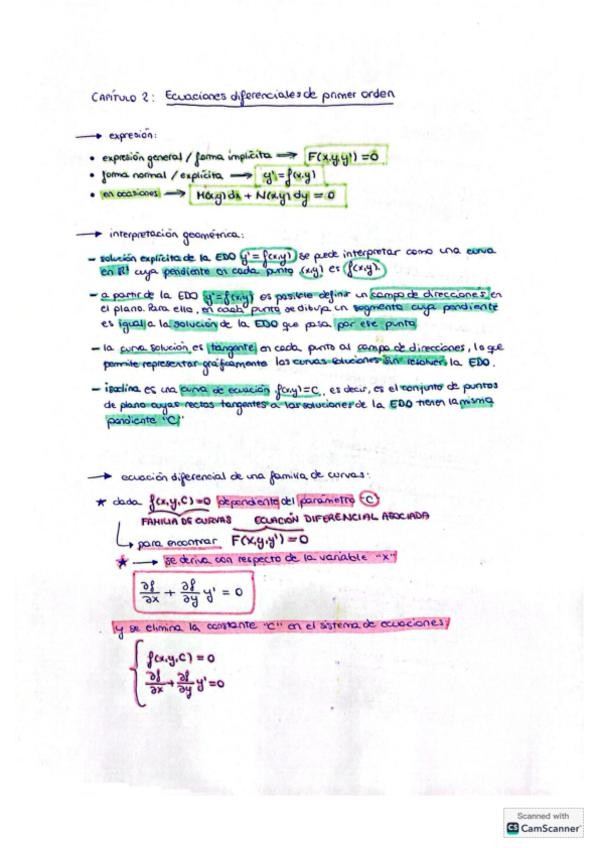 CAPÍTULO 2: Ecuaciones diferenciales de primer orden
→ expresión:
• expresión general / forma implícita → F(x,y,y') = 0
• forma normal / explícita → y' = f(x,y)
• en ocasiones → M(x,y)dx + N(x,y)dy = 0
→ interpretación geométrica:
- solución explícita de la EDO y' = f(x,y) se puede interpretar como una curva
en ℝ² cuya pendiente en cada punto (x,y) es f(x,y).
- a partir de la EDO y' = f(x,y) es posible definir un campo de direcciones en
el plano. Para ello, en cada punto se dibuja un segmento cuya pendiente
es igual a la solución de la EDO que pasa por ese punto.
- la curva solución es tangente en cada punto al campo de direcciones, lo que
permite representar gráficamente las curvas soluciones sin resolver la EDO.
- isoclina es una curva de ecuación f(x,y) = C, es decir, es el conjunto de puntos
de plano cuyas rectas tangentes a las soluciones de la EDO tienen la misma
pendiente "C"
→ ecuación diferencial de una familia de curvas:
* dada f(x,y,C) = 0 dependiente del parámetro C
FAMILIA DE CURVAS ECUACIÓN DIFERENCIAL ASOCIADA
↳ para encontrar F(x,y,y') = 0
* → se deriva con respecto de la variable "x"
∂f/∂x + ∂f/∂y y' = 0
y se elimina la constante "C" en el sistema de ecuaciones:
f(x,y,C) = 0
∂f/∂x + ∂f/∂y y' = 0
Scanned with
CS CamScanner